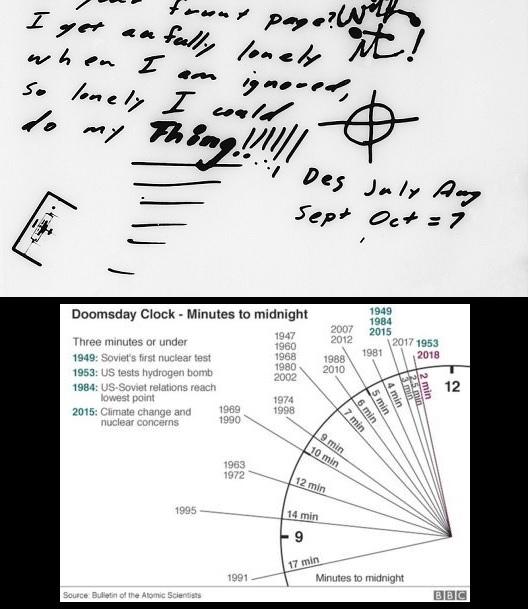 your front page?
I get aufully lonely
when I am ignored,
so lonely I could
do my Thing!!!!!!
With it!
Des July Aug
Sept Oct = 7
Doomsday Clock - Minutes to midnight
Three minutes or under
1949: Soviet's first nuclear test
1953: US tests hydrogen bomb
1984: US-Soviet relations reach
lowest point
2015: Climate change and
nuclear concerns
1949
1984
2015
1953
2018
2017
2007
2012
1981
1947
1960
1968
1980
2002
1988
2010
1974
1998
1969
1990
1963
1972
1995
1991
2 min
2.5 min
3 min
4 min
5 min
6 min
7 min
9 min
10 min
12 min
14 min
17 min
12
9
Minutes to midnight
Source: Bulletin of the Atomic Scientists
BBC